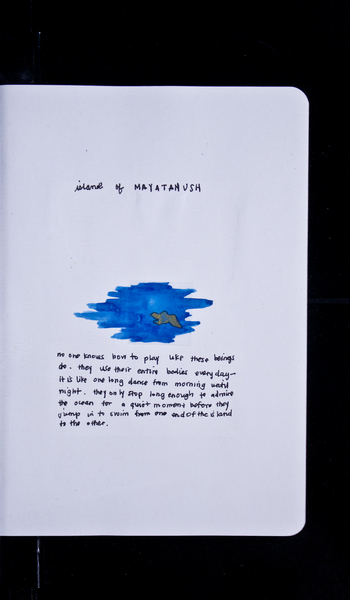 island of MAYATANUSH
no one knows how to play like these beings
do. they use their entire bodies every day—
it is like one long dance from morning until
night. they only stop long enough to admire
the ocean for a quiet moment before they
jump in to swim from one end of the island
to the other.